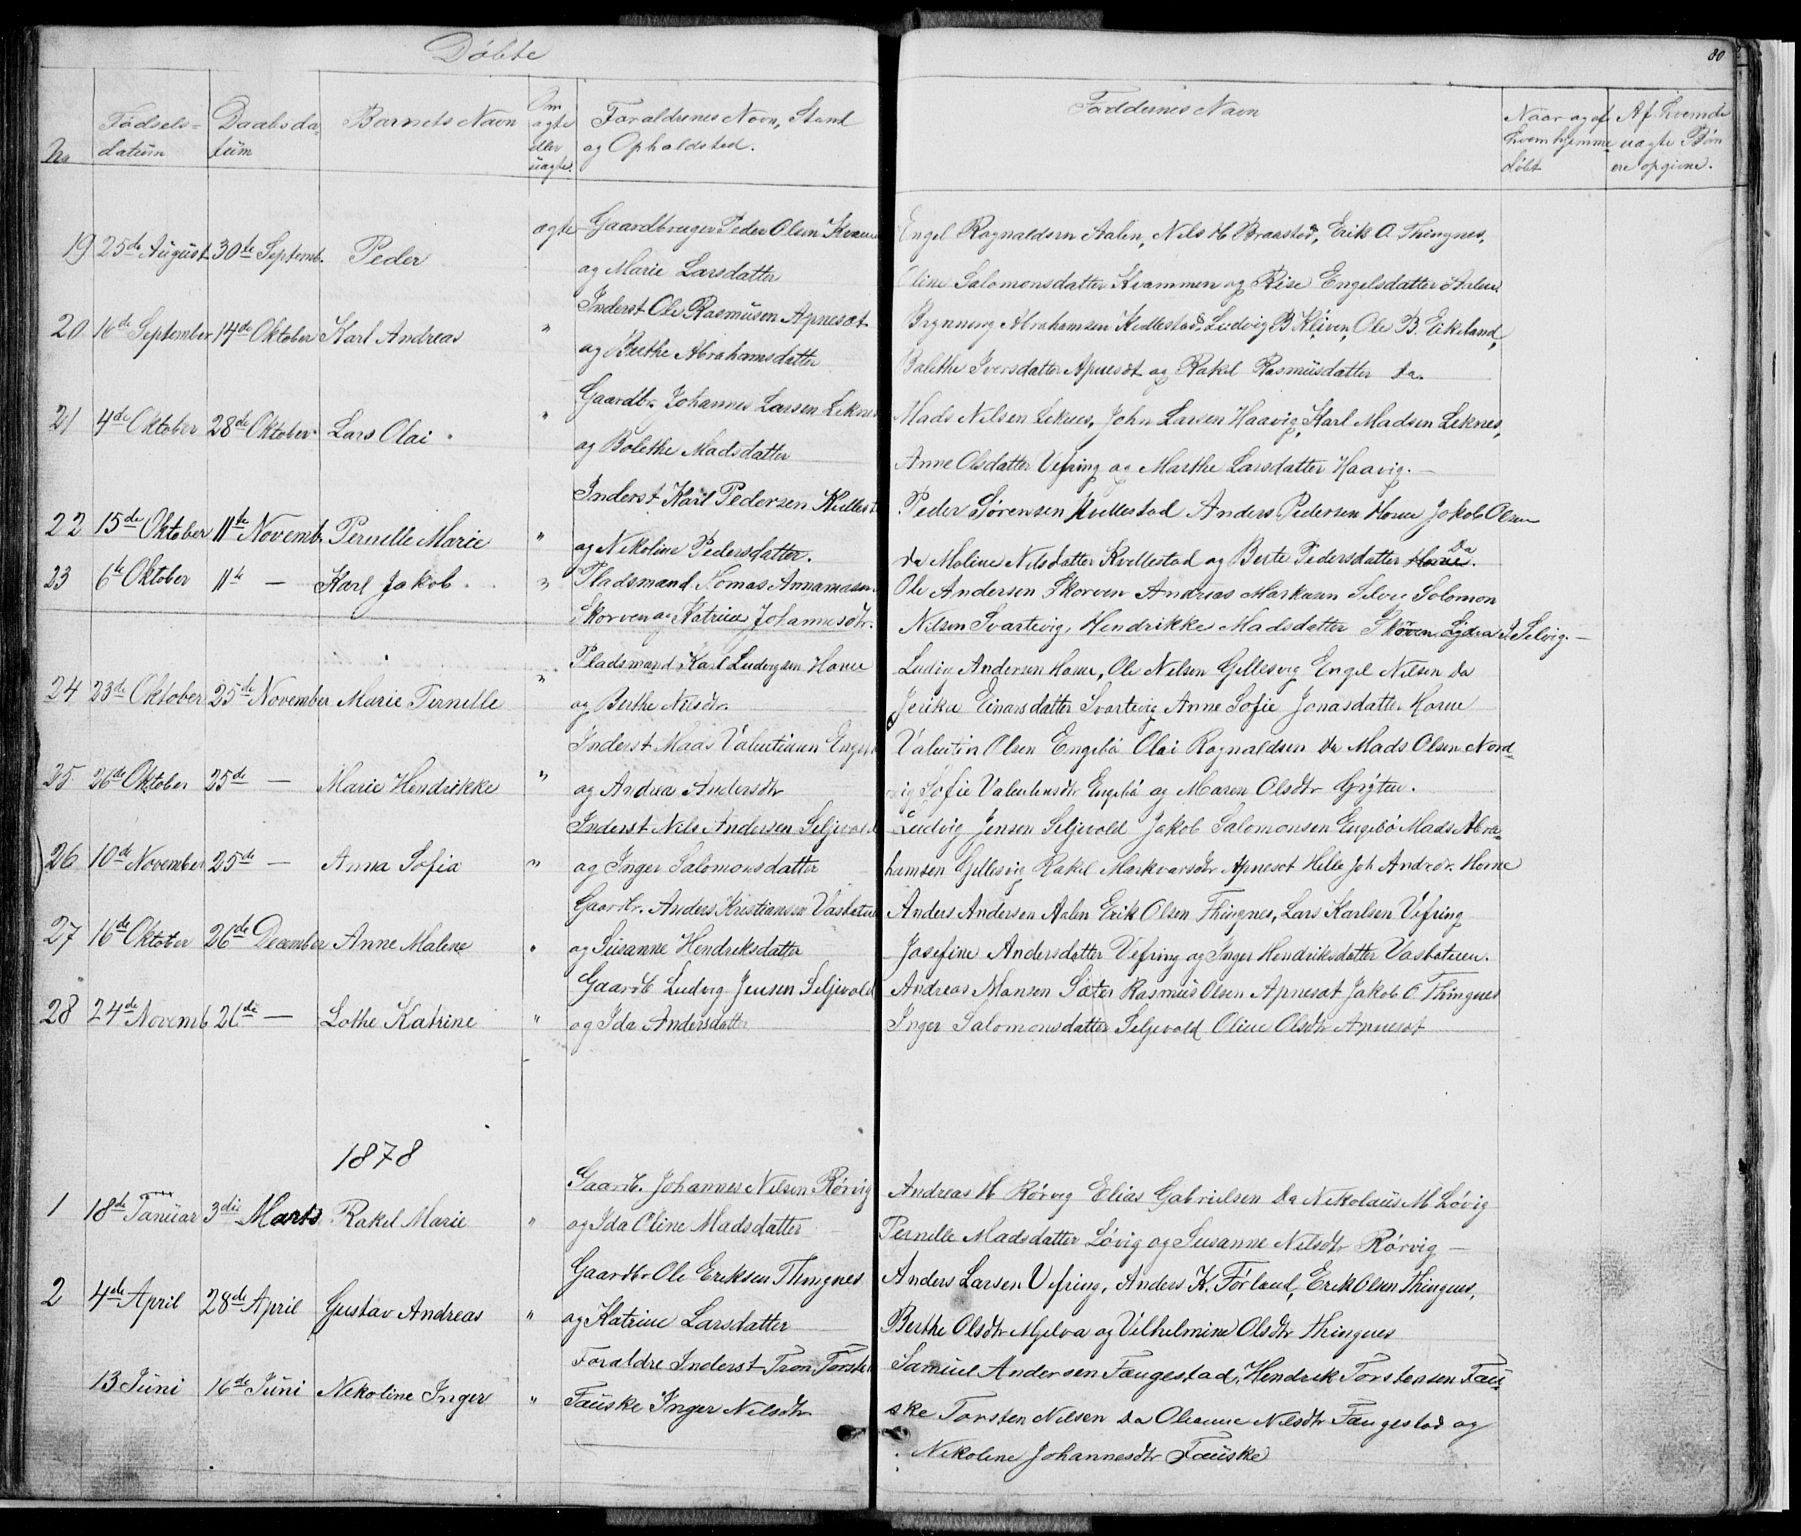 Döbte
80
No
Födsels-
datum
Daabsda-
tüm
Barnets Navn
Om
ægte
eller
uægte.
Foraldrenes Navn, Stand
og Opholdsted.
Faddernes Navn
Naar og af
hvem hjemme
döbt
Af hvem de
uægte Børn
ere opgivne.
19 25de August 30te Septemb. Peder ægte Gaardbruger Peder Olsen
og Marie Larsdatter
Engel Ragnaldsen Aalen, Nils M Braastad, Erik O Thingnes,
Oline Salomonsdatter Kvammen og Engelsdatter Aalen
20 16de September 14de Oktober Karl Andreas " Inderst Ole Rasmusen Apneset
og Berthe Abrahamsdatter
Brynning Abrahamsen Ludvig B Kliven, Ole B. Eikeland,
Bolethe Iversdatter Apneset og Rakel Rasmüsdatter da.
21 4de Oktober 28de Oktober Lars Olai " Gaardbr. Johannes Larsen Leknes
og Bolethe Madsdatter
Mads Nilsen Leknes, John Larsen Haavig, Karl Madsen Leknes,
Anne Olsdatter Vefring og Marthe Larsdatter Haavig.
22 15de Oktober 11te Novemb. Pernelle Marie " Inderst Karl Pedersen
og Nikoline Pedersdatter.
Peder Sørensen Kvellestad Anders Pedersen Horne Jakob Olsen
da Moline Nilsdatter Kvellestad og Berte Pedersdatter Horne Da.
23 6te Oktober 11te — Karl Jakob " Pladsmand Tomas Annanassen
Skorven og Katrine Johannesdtr.
Ole Andersen Skorven Andreas Markusen Solomon
Nilsen Svartevig, Hendrikke Madsdatter Skorven Selvig.
24 23de Oktober 25de November Marie Pernelle " Pladsmand Karl Ludvigsen Horne
og Berthe Nilsdr.
Ludvig Andersen Horne, Ole Nilsen Gjellesvig Engel Nilsen Da
Jerika Einarsdatter Svartevig Anne Sofie Jonasdatter Horne
25 26de Oktober 25de — Marie Hendrikke " Inderst Mads Valentinsen
og Andrea Andersdtr
Valentin Olsen Engebö Olai Ragnaldsen Da Mads Olsen Nord-
vig Sofie Valentinsdtr Engebö og Maren Olsdtr
26 10de November 25de — Anna Sofia " Inderst Nils Andersen Seljevold
og Inger Salomonsdatter
Ludvig Jensen Seljevold Jakob Salomonsen Engebö Mads Abra-
hamsen Gjellesvig Rakel Markvarsdtr Apneset Helle Joh Horne
27 16de Oktober 26de December Anne Malene " Gaardbr. Anders Kristiansen
og Susanne Hendriksdatter
Anders Andersen Aalen Erik Olsen Thingnes, Lars Karlsen Vefring
Josefine Andersdatter Vefring og Inger Hendriksdatter Vasbotnen.
28 24de Novemb 26de — Lothe Katrine " Gaardb Ludvig Jensen Seljevold
og Ida Andersdatter
Andreas Monsen Sæter Rasmus Olsen Apneset Jakob O Thingnes
Inger Salomonsdatter Seljevold Oline Olsdtr Apneset
1878
1 18de Januar 3die Marts Rakel Marie " Gaardb. Johannes Nilsen Rörvig
og Ida Oline Madsdatter
Andreas M Rörvig Elias Gabrielsen Da Nikolaüs M Lövig
Pernille Madsdatter Lövig og Susanne Nilsdtr Rörvig —
2 4de April 28de April Gustav Andreas " Gaardbr Ole Eriksen Thingnes
og Katrine Larsdatter
Anders Larsen Vefring, Anders K. Førland, Erik Olsen Thingnes,
Berthe Olsdtr Mjelva og Vilhelmine Olsdtr Thingnes
13 Juni 16de Juni Nikoline Inger " Foraldre Inderst Tron
Faüske Inger Nilsdtr
Samuel Andersen Faugestad, Hendrik Torstensen Faü-
ske Torsten Nilsen Da Oleanne Nilsdtr Faugestad og
Nikoline Johannesdtr Faüske